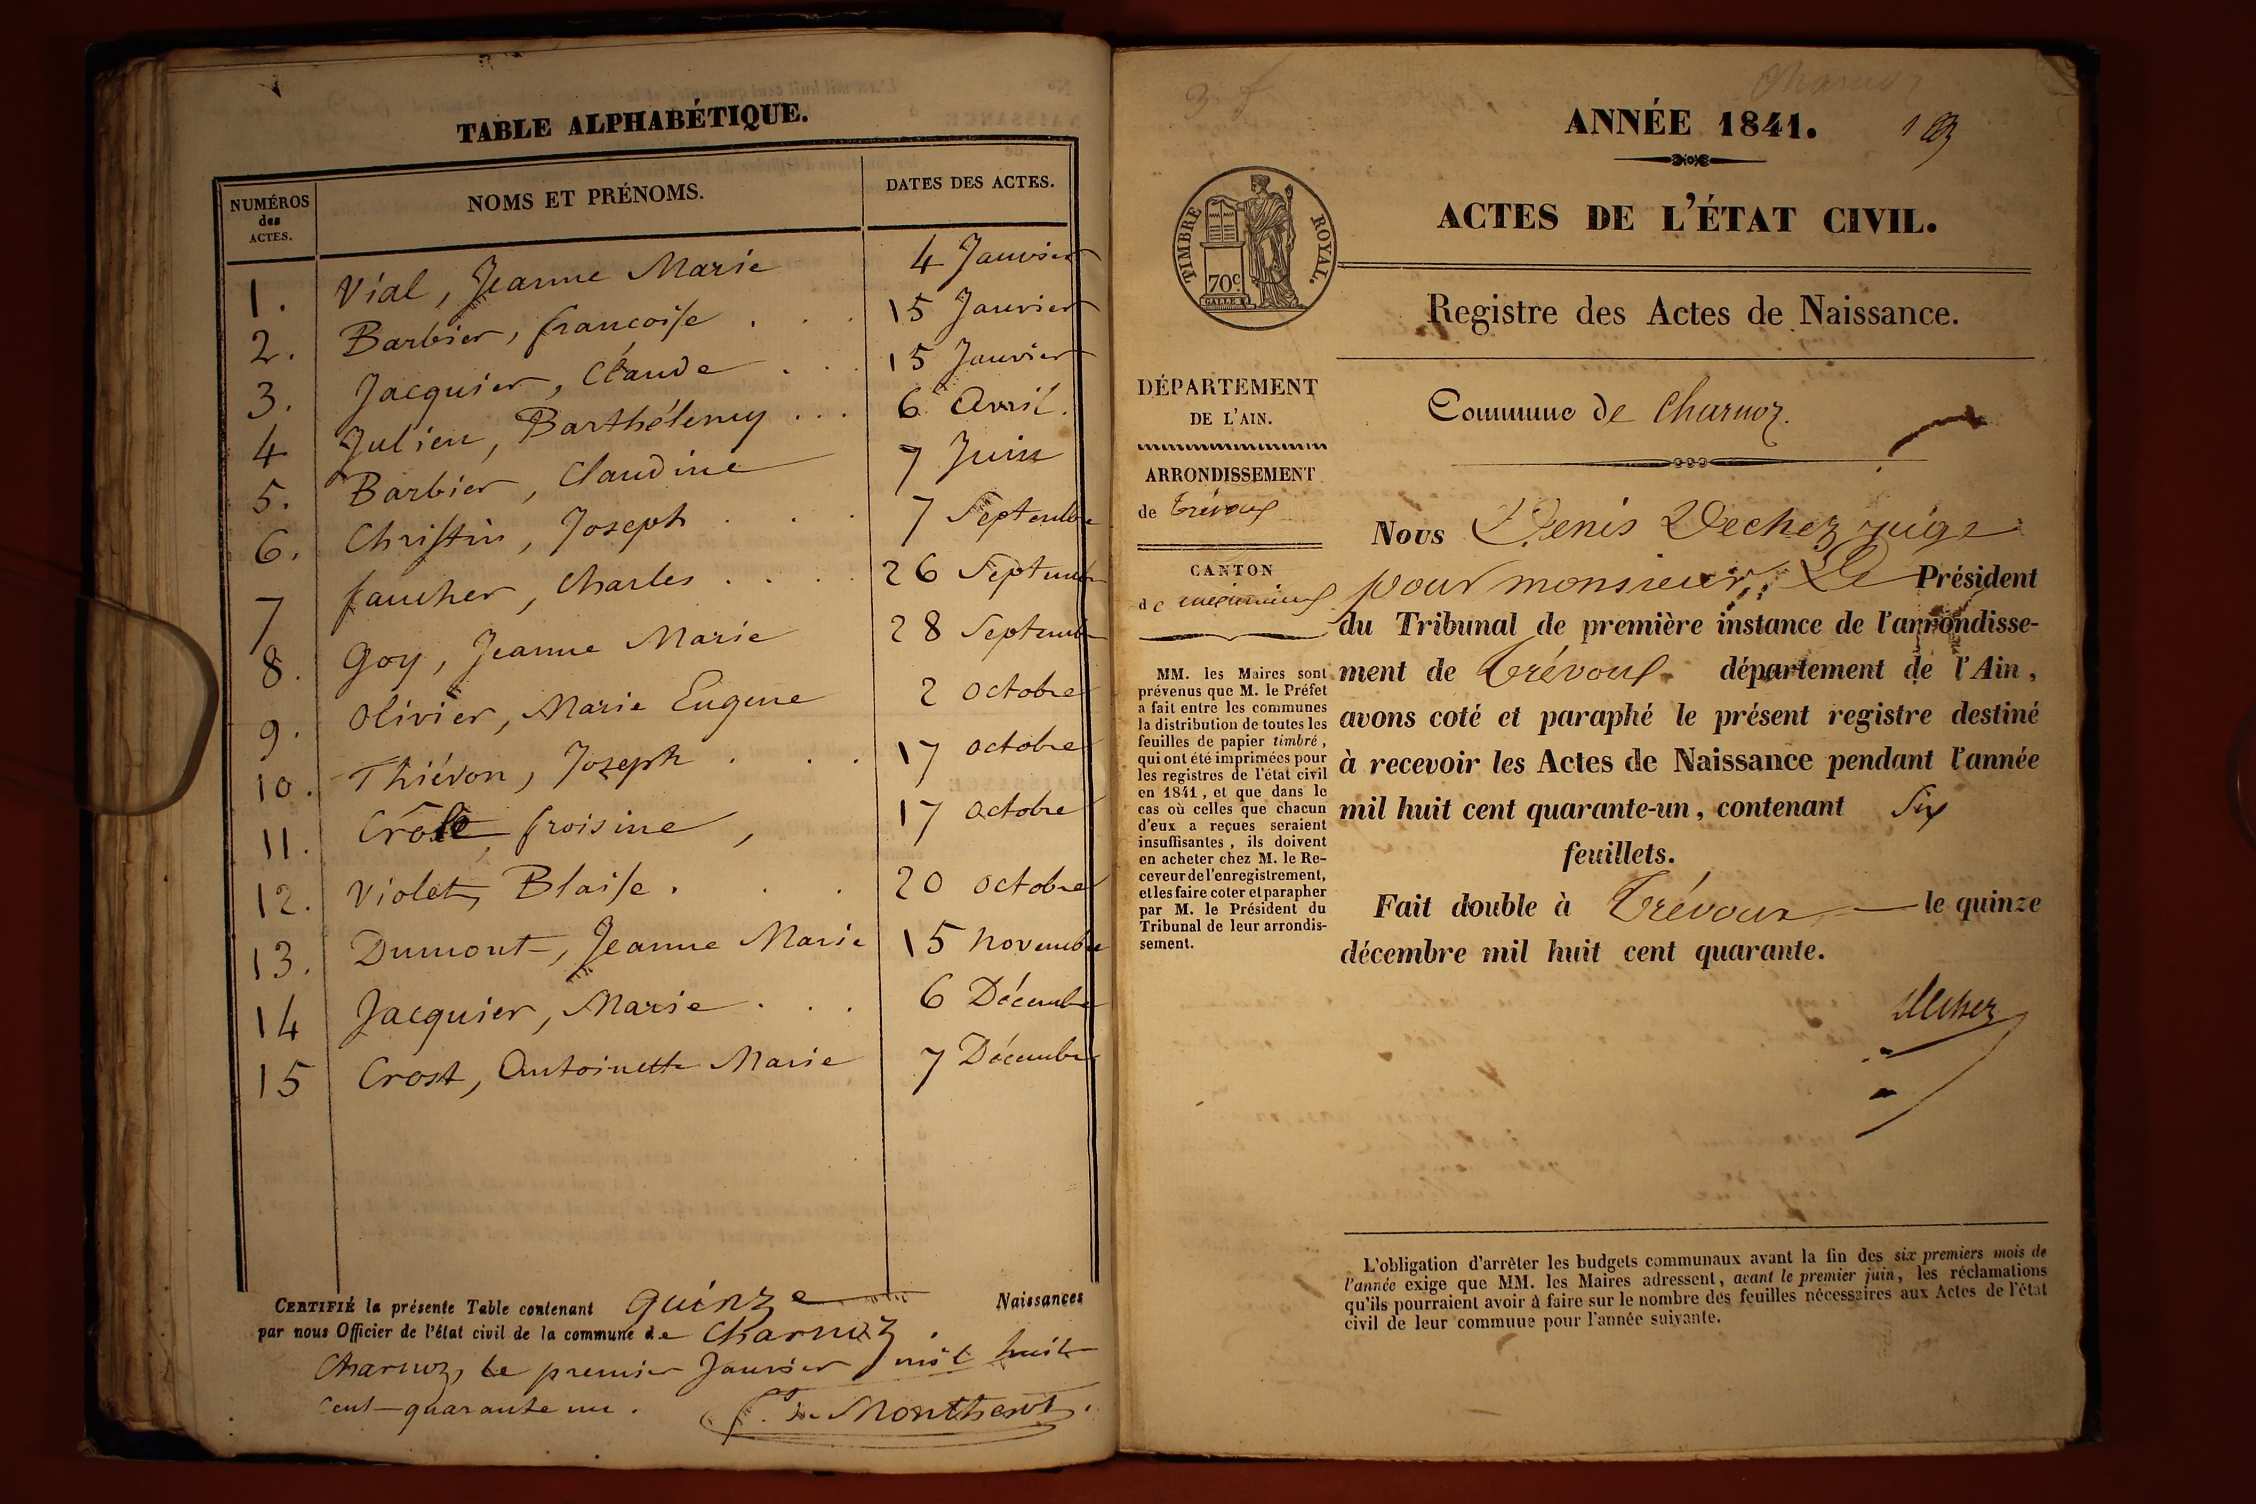 TABLE ALPHABÉTIQUE.
NUMÉROS des ACTES.
NOMS ET PRÉNOMS.
DATES DES ACTES.
1. Vial, Jeanne Marie 4 Janvier
2. Barbier, françoise . . . 15 Janvier
3. Jacquier, Claude . . . 15 Janvier
4 Julien, Barthélemy . . . 6 Avril.
5. Barbier, Claudine 7 Juin
6. Christin, Joseph . . . 7 Septembre
7 faucher, Charles . . . . 26 Septembre
8. Goy, Jeanne Marie 28 Septembre
9. Olivier, Marie Eugene 2 octobre
10. Thiévon, Joseph . . . 17 octobre
11. froisine, 17 octobre
12. Violet, Blaise . . . 20 octobre
13. Dumont, Jeanne Marie 15 novembre
14 Jacquier, Marie . . . 6 Décembre
15 Crost, Antoinette Marie 7 Décembre
CERTIFIÉ la présente Table contenant quinze Naissances
par nous Officier de l'état civil de la commune de Charnoz.
Charnoz, le premier Janvier mil huit
Cent quarante un.
de Montherot
Charnoz
ANNÉE 1841.
TIMBRE ROYAL.
70c.
ACTES DE L'ÉTAT CIVIL.
Registre des Actes de Naissance.
DÉPARTEMENT
DE L'AIN.
ARRONDISSEMENT
de Trévoux
CANTON
de meximieux
MM. les Maires sont
prévenus que M. le Préfet
a fait entre les communes
la distribution de toutes les
feuilles de papier timbré,
qui ont été imprimées pour
les registres de l'état civil
en 1841, et que dans le
cas où celles que chacun
d'eux a reçues seraient
insuffisantes, ils doivent
en acheter chez M. le Re-
ceveur de l'enregistrement,
et les faire coter et parapher
par M. le Président du
Tribunal de leur arrondis-
sement.
Commune de Charnoz.
Nous Denis Dechez juge
pour monsieur Le Président
du Tribunal de première instance de l'arrondisse-
ment de Trévoux département de l'Ain,
avons coté et paraphé le présent registre destiné
à recevoir les Actes de Naissance pendant l'année
mil huit cent quarante-un, contenant Six
feuillets.
Fait double à Trévoux le quinze
décembre mil huit cent quarante.
Dechez
L'obligation d'arrêter les budgets communaux avant la fin des six premiers mois de
l'année exige que MM. les Maires adressent, avant le premier juin, les réclamations
qu'ils pourraient avoir à faire sur le nombre des feuilles nécessaires aux Actes de l'état
civil de leur commune pour l'année suivante.